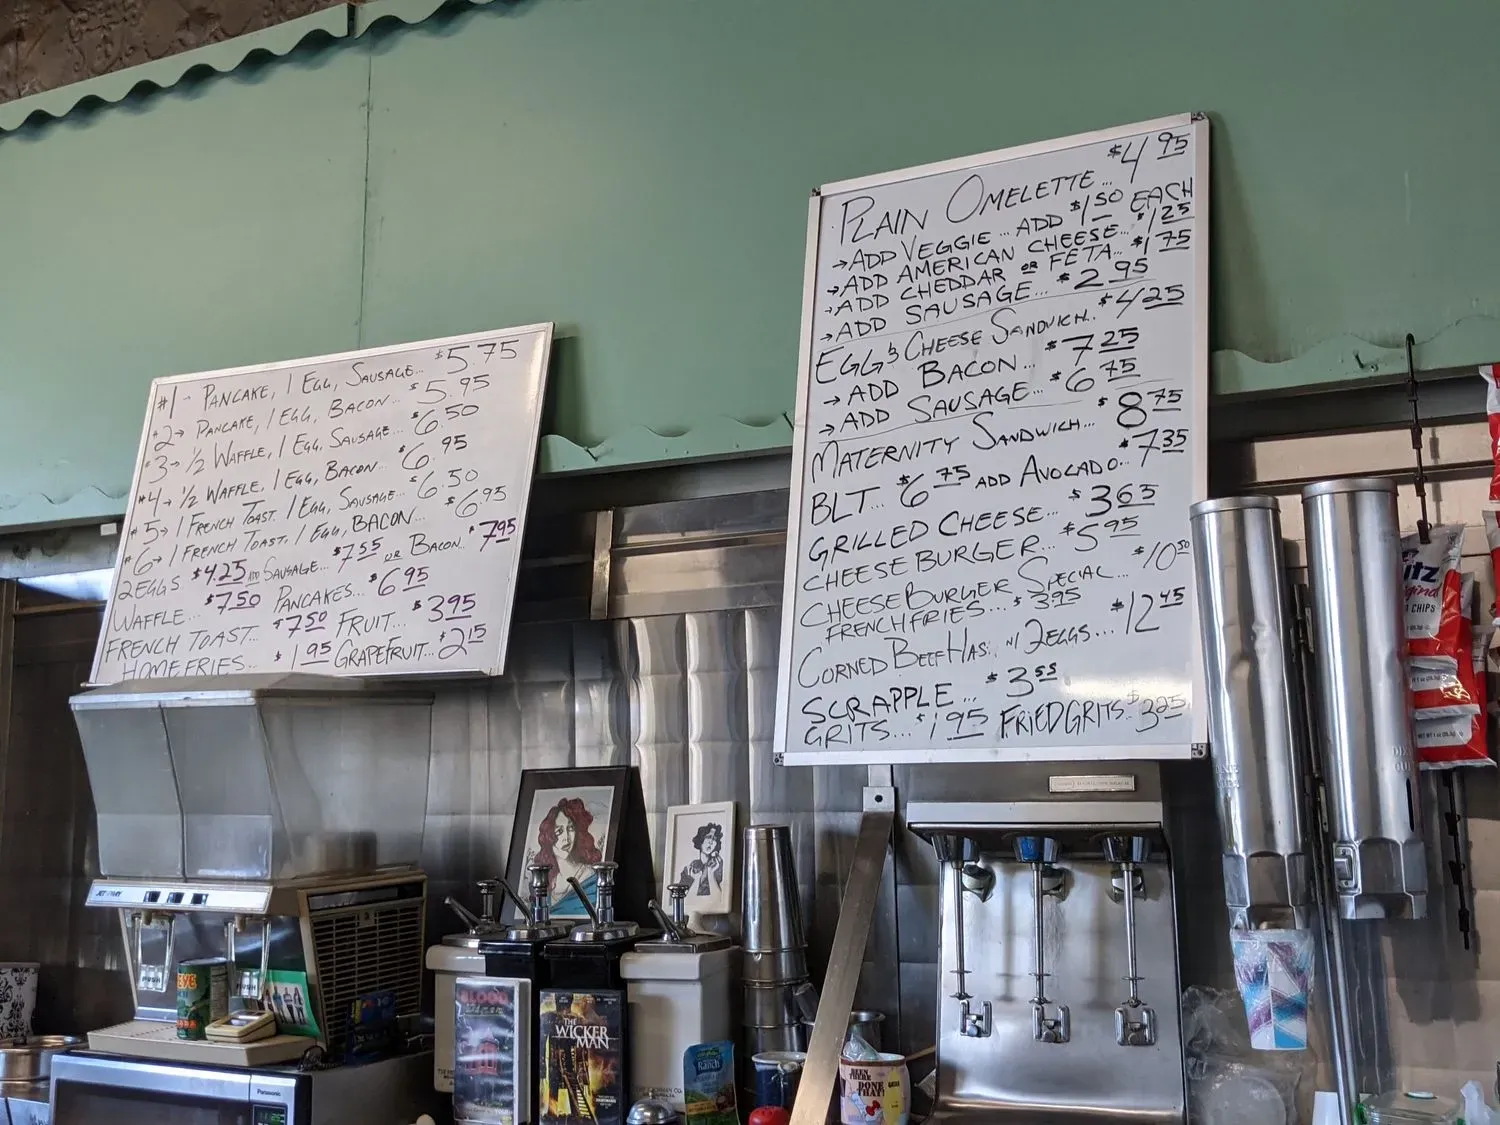 #1 → PANCAKE, 1 EGG, SAUSAGE... $5.75
#2 → PANCAKE, 1 EGG, BACON... $5.95
#3 → 1/2 WAFFLE, 1 EGG, SAUSAGE... $6.50
#4 → 1/2 WAFFLE, 1 EGG, BACON... $6.95
#5 → 1 FRENCH TOAST, 1 EGG, SAUSAGE... $6.50
#6 → 1 FRENCH TOAST, 1 EGG, BACON... $6.95
2 EGGS $4.25 ADD SAUSAGE... $7.55 OR BACON... $7.95
WAFFLE... $7.50 PANCAKES... $6.95
FRENCH TOAST... $7.50 FRUIT... $3.95
HOMEFRIES... $1.95 GRAPEFRUIT... $2.15
PLAIN OMELETTE... $4.95
→ ADD VEGGIE... ADD $1.50 EACH
→ ADD AMERICAN CHEESE... $1.25
→ ADD CHEDDAR OR FETA... $1.75
→ ADD SAUSAGE... $2.95
EGG & CHEESE SANDWICH... $4.25
→ ADD BACON... $7.25
→ ADD SAUSAGE... $6.75
MATERNITY SANDWICH... $8.75
BLT... $6.75 ADD AVOCADO... $7.35
GRILLED CHEESE... $3.65
CHEESEBURGER... $5.95
CHEESEBURGER SPECIAL... $10.50
FRENCH FRIES... $3.95
CORNED BEEF HAS. W/ 2 EGGS... $12.45
SCRAPPLE... $3.55
GRITS... $1.95 FRIED GRITS... $3.25
JET SPRAY
Panasonic
BLOOD
THE WICKER MAN
Ranch
BEEN THERE DONE THAT!
utz
Original
CHIPS